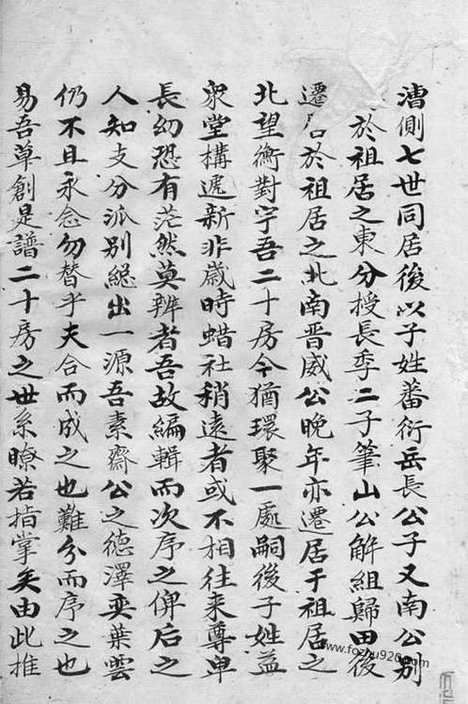 漕側七世同居後以子姓蕃衍岳長公子又南公別
於祖居之東分授長季二子筆山公解組歸田後
遷居於祖居之北南晉威公晚年亦遷居于祖居之
北望衡對宇吾二十房今猶環聚一處嗣後子姓益
衆堂構遞新非歲時蜡社稍遠者或不相往来尊卑
長幼恐有茫然莫辨者吾故編輯而次序之俾后之
人知支分派別緫出一源吾素齋公之德澤奕葉雲
仍不且永念勿替乎夫合而成之也難分而序之也
易吾草創是譜二十房之世系瞭若指掌矣由此推
www.fozhu920.com